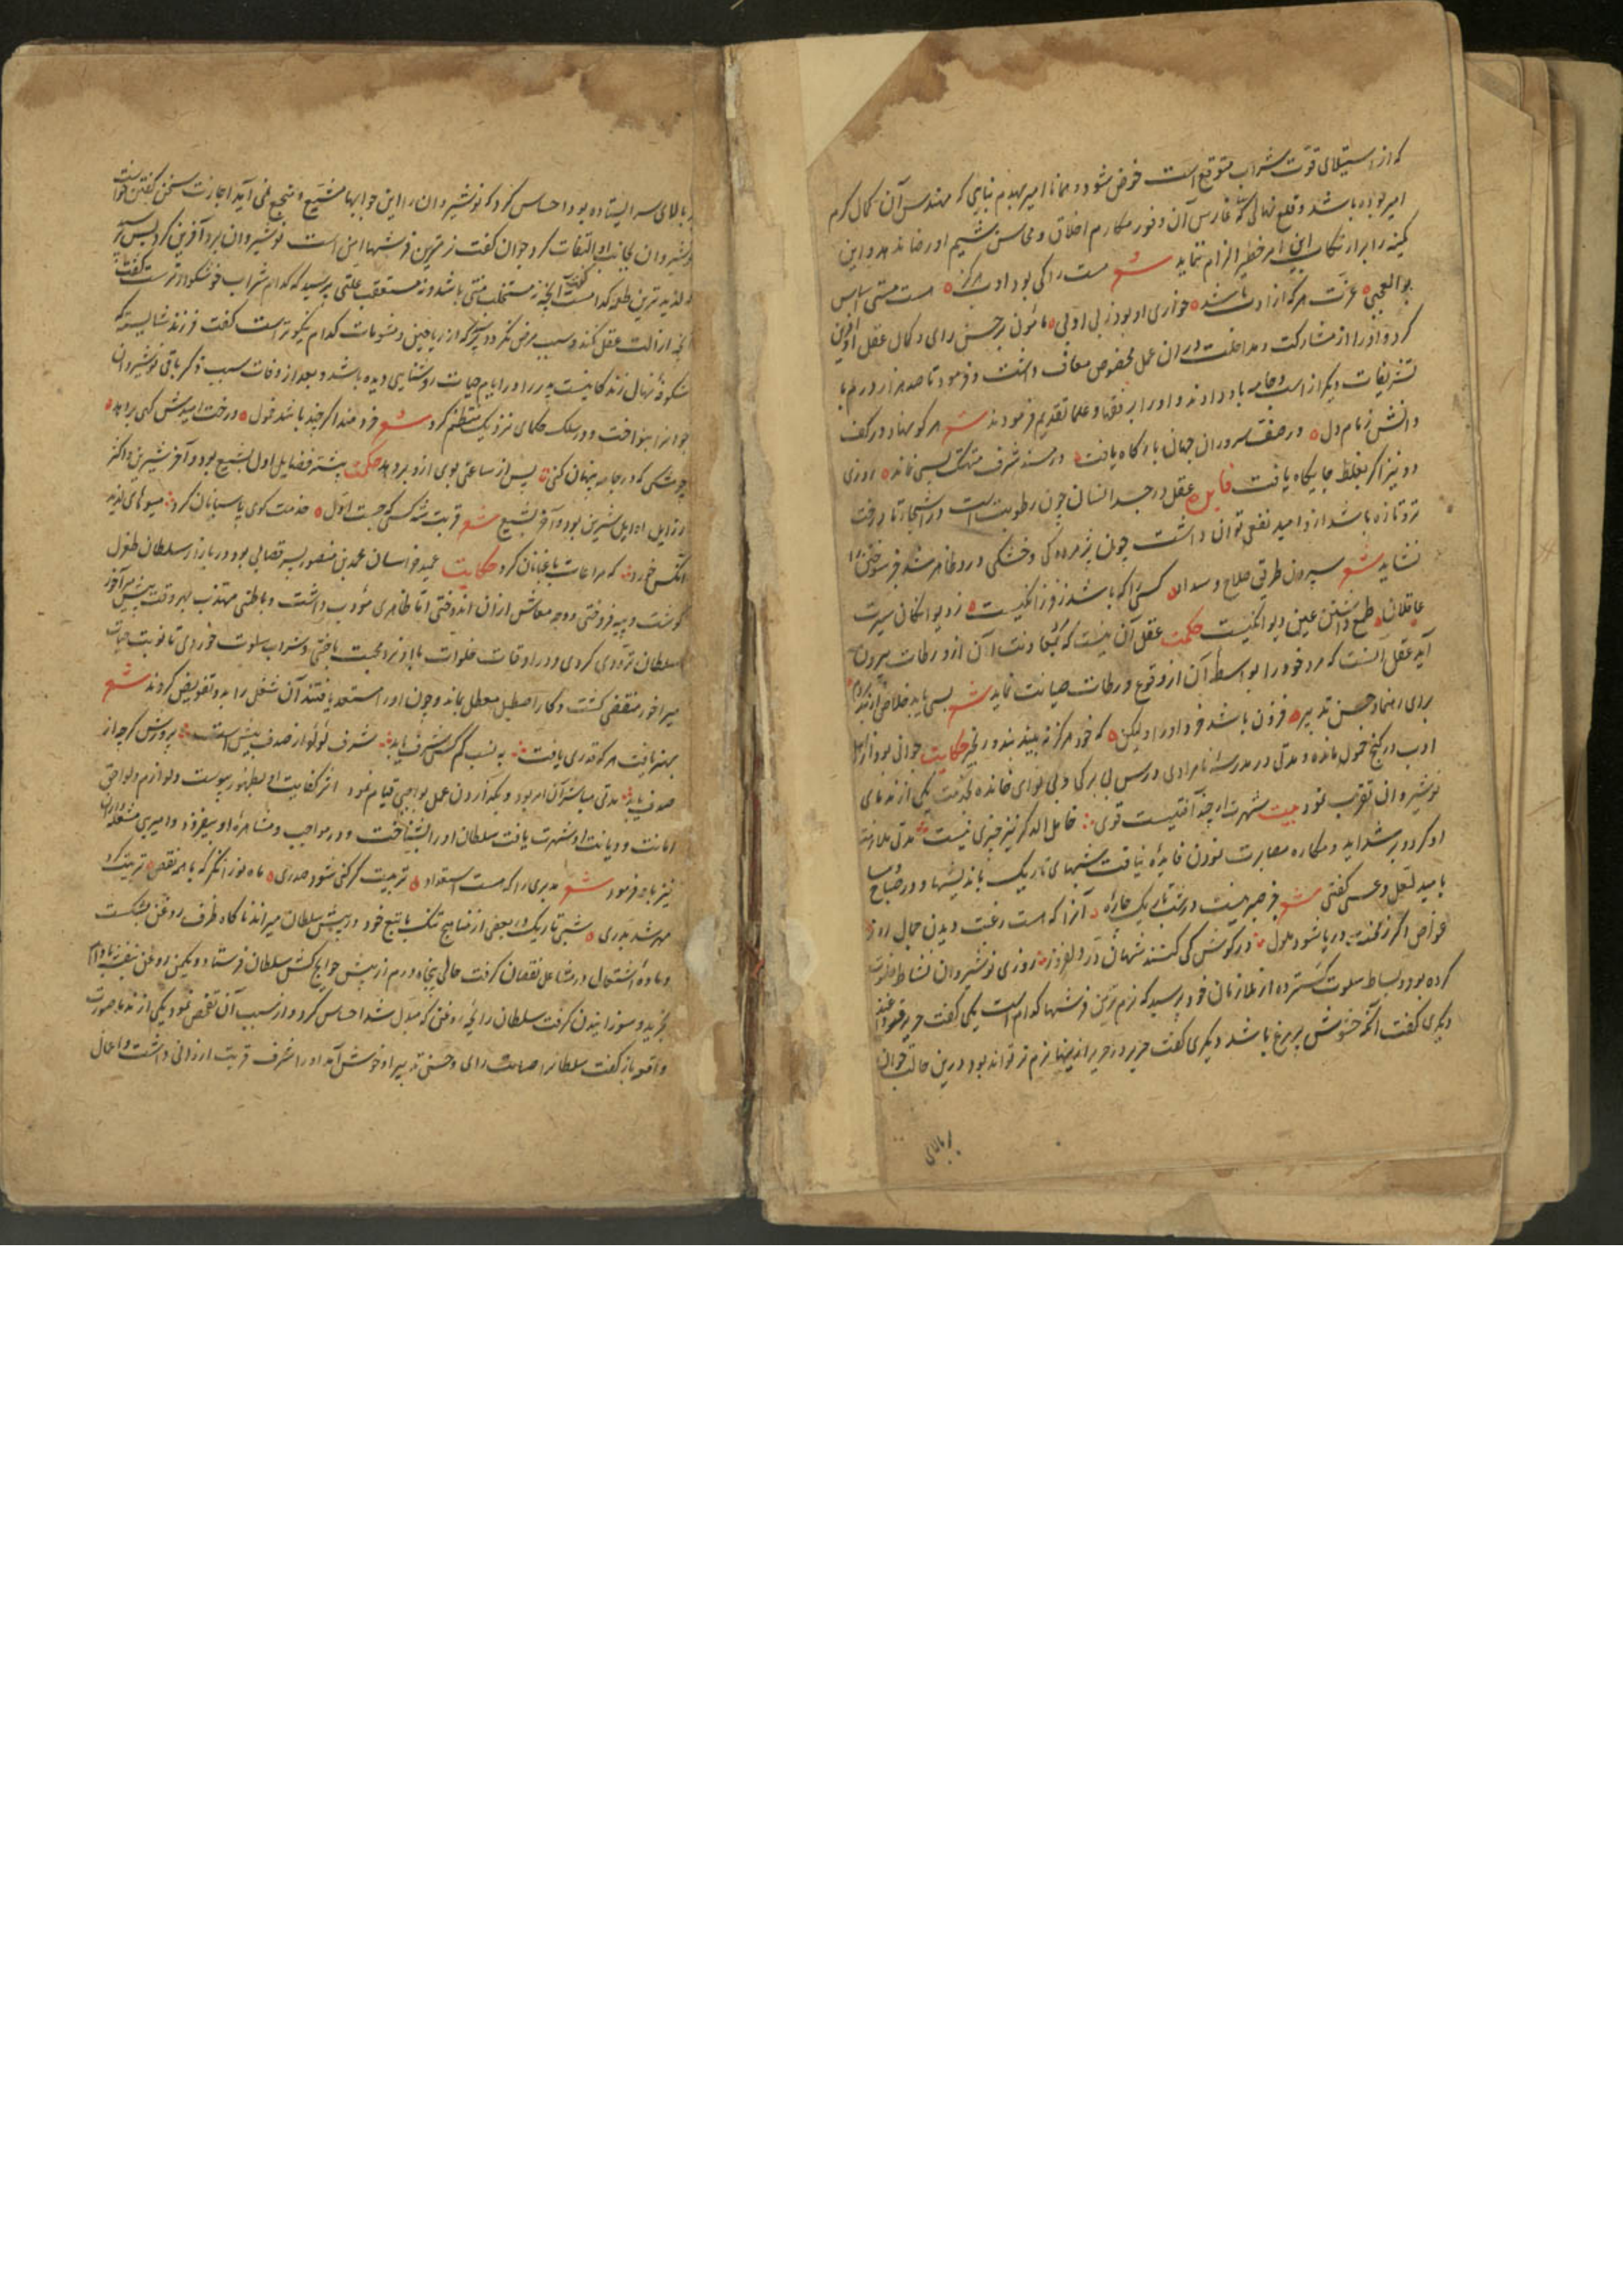 که از استیلای قوت شراب متوقع است خوض شود و همانا امیر بهدم بنایی که مهندس آن کمال کرم
امیر بوده باشد و قلع نهالی که غارس آن وفور مکارم اخلاق و محاسن شیم او رضا ندهد و این
کمینه را بر ارتکاب این امر خطیر الزام ننماید شعر مست را کی بود ادب هرگز مست مستی اساس
بوالعجبی عزت هرکه از ادب باشد خواری او بود ز بی ادبی مامون بر حسن رای و کمال عقل او آفرین
کرد و او را از مشارکت و مداخلت در آن عمل مخصوص معاف داشت و فرمود تا صد هزار درم با
تشریفات دیگر از اسب و جامه باو دادند و او را بر فقها و علما تقدیم فرمودند شعر هر کو نهاد در کف
دانش زمام دل در صف سروران جهان بارگاه یافت در مسند شرف متهتک بسی نماند روزی
دو نیز اگر بغلط جایگاه یافت عقل در جسد انسان چون رطوبت است در اشجار تا درخت
تر و تازه باشد ازو امید نفعی توان داشت چون پژمردگی و خشکی درو ظاهر شد جز سوختن را
نشاید شعر سپردن طریق صلاح و سداد کسی را که باشد ز فرزانگیست ز دیوانگان سیرت
عاقلان طمع داشتن عین دیوانگیست حکمت عقل آن نیست که بمعاونت آن از ورطات بیرون
آید عقل آنست که مرد خود را بواسطه آن از وقوع ورطات صیانت نماید شعر بسی باید خلاص از بند مردم
برای رهنما و حسن تدبیر فزون باشد خرد او را ولیکن که خود هرگز نه بیند بند و زنجیر حکایت جوانی بود از اهل
ادب در کنج خمول مانده و مدتی در مدرسه نامرادی درس بی برگی و بی نوای خوانده بخدمت یکی از ندمای
نوشیروان تقرب نمود بیت شهرت ارچه آفتیست قوی خامل الذکر نیز چیزی نیست مدتی ملازمت
او کرد و بر شداید و مکاره مصابرت نمودن فایده نیافت شبهای تاریک باندیشها و در صباح و مسا
بامید لعل و عسی گفتی شعر جز صبر نیست در شب تاریک چاره آنرا که هست رغبت دیدن جمال روز
غواص اگر ز محنت دریا شود ملول در گوش کی کشند شهان در دلفروز روزی نوشیروان نشاط خلوت
کرده بود و بساط سلوت گسترده از ملازمان خود پرسید که نرم ترین فرشها کدام است یکی گفت حریر
دیگری گفت آنکه حشوش پر مرغ باشد دیگری گفت حریر در حریر از اینها نرم تر تواند بود درین حالت جوان
بر بالای
بر بالای سر ایستاده بود احساس کرد که نوشیروان را این جوابها مشبع و منجع نمی آید اجازت سخن گفتن خواست
نوشیروان بجانب او التفات کرد جوان گفت نرمترین فرشها امن است نوشیروان برو آفرین کرد پس پرسید
که لذیذترین طعمه کدامست گفت آنچه نه مستجلب منتی باشد و نه مستعقب علتی پرسید که کدام شراب خوشگوارترست گفت
آنچه ازالت عقل نکند و سبب مرض نگردد پرسید که از ریاحین و مشمومات کدام نیکوتر است گفت فرزند شایسته که
شکوفه نهال زندگانیست پدر را در ایام حیات روشنایی دیده باشد و بعد از وفات سبب ذکر باقی نوشیروان
جوانرا بنواخت و در سلک حکمای نزدیک منتظم کرد شعر خردمند اگر چند باشد خمول درخت امیدش گهی بر دهد
چو مشکی که در جامه پنهان کنی پس از ساعتی بوی ازو بر دهد حکمت بیشتر فضایل اول بشیع بود و آخر شیرین و اکثر
رذایل اوایل شیرین بود و آخر بشیع شعر قربت شه کسی که جست اول خدمت کوی پاسبانان کرد میوهای لذیذ
آنکس خورد که مراعات باغبانان کرد حکایت عمید خراسان محمد بن منصور پسر قصابی بود و در بازار سلطان طغرل
گوشت و پیه فروختی و وجه معاش از آن اندوختی اما ظاهری مؤدب داشت و باطنی مهذب بهر وقت پیش میر آخور
سلطان ترددی کردی و در اوقات خلوات با او نرد محبت باختی و شراب سلوت خوردی تا نوبت حیات
میر آخور منقضی گشت و کار اصطبل معطل بماند و چون او را مستعد یافتند آن شغل را بدو تفویض کردند شعر
بهنر یافت هرکه قدری یافت به نسب کم کسی شرف یابد شرف لؤلؤ از صدف بیش است پرورش گرچه از
صدف یابد مدتی مباشر آن امر بود و بگذاردن عمل بواجبی قیام نمود اثر کفایت او بظهور پیوست و لوازم و لواحق
امانت و دیانت او شهرت یافت سلطان او را بشناخت و در مواجب و مشاهره او بیفزود و امیری مشعله داران
نیز باو فرمود شعر مدبری را که هست استعداد تربیت گر کنی شود صدری ماه نو را نگر که با همه نقص تربیت کرد
مهر شد بدری شبی تاریک در بعضی از مناهج تنگ با تبع خود در پیش سلطان میراند ناگاه ظرف روغن بشکست
و ماده اشتعال در مشاعل نقصان گرفت حالی پنجاه درم از پیش حوایج کش سلطان فرستاد و یکمن روغن بنفشه بادام
بخرید و سوزانیدن گرفت سلطان رایحه روغن که مبدل شد احساس کرد و از سبب آن تفحص نمود یکی از ندما صورت
واقعه باز گفت سلطانرا اصابت رای و حسن تدبیر او خوش آمد او را شرف قربت ارزانی داشت و اعمال